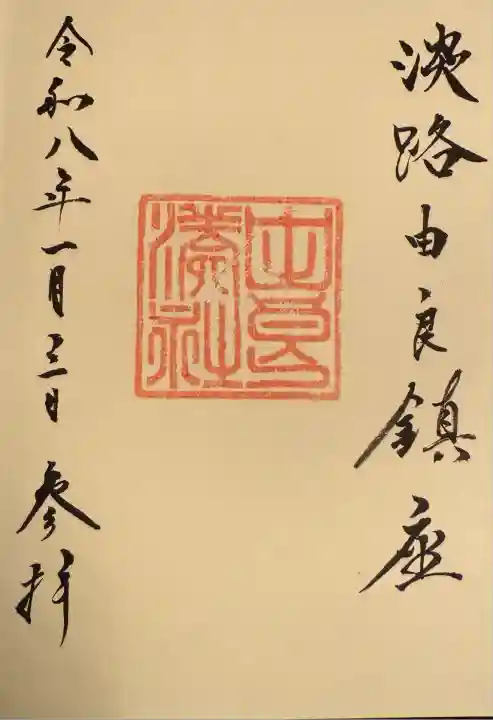 淡路由良鎮座
由良湊神社
令和八年一月三日 参拝